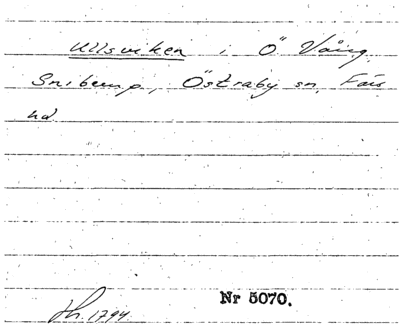 Ullsviken i Ö Vång.
Snibemp, Östraby sn. Färs
hd
Nr 5070.
Jh. 1794.